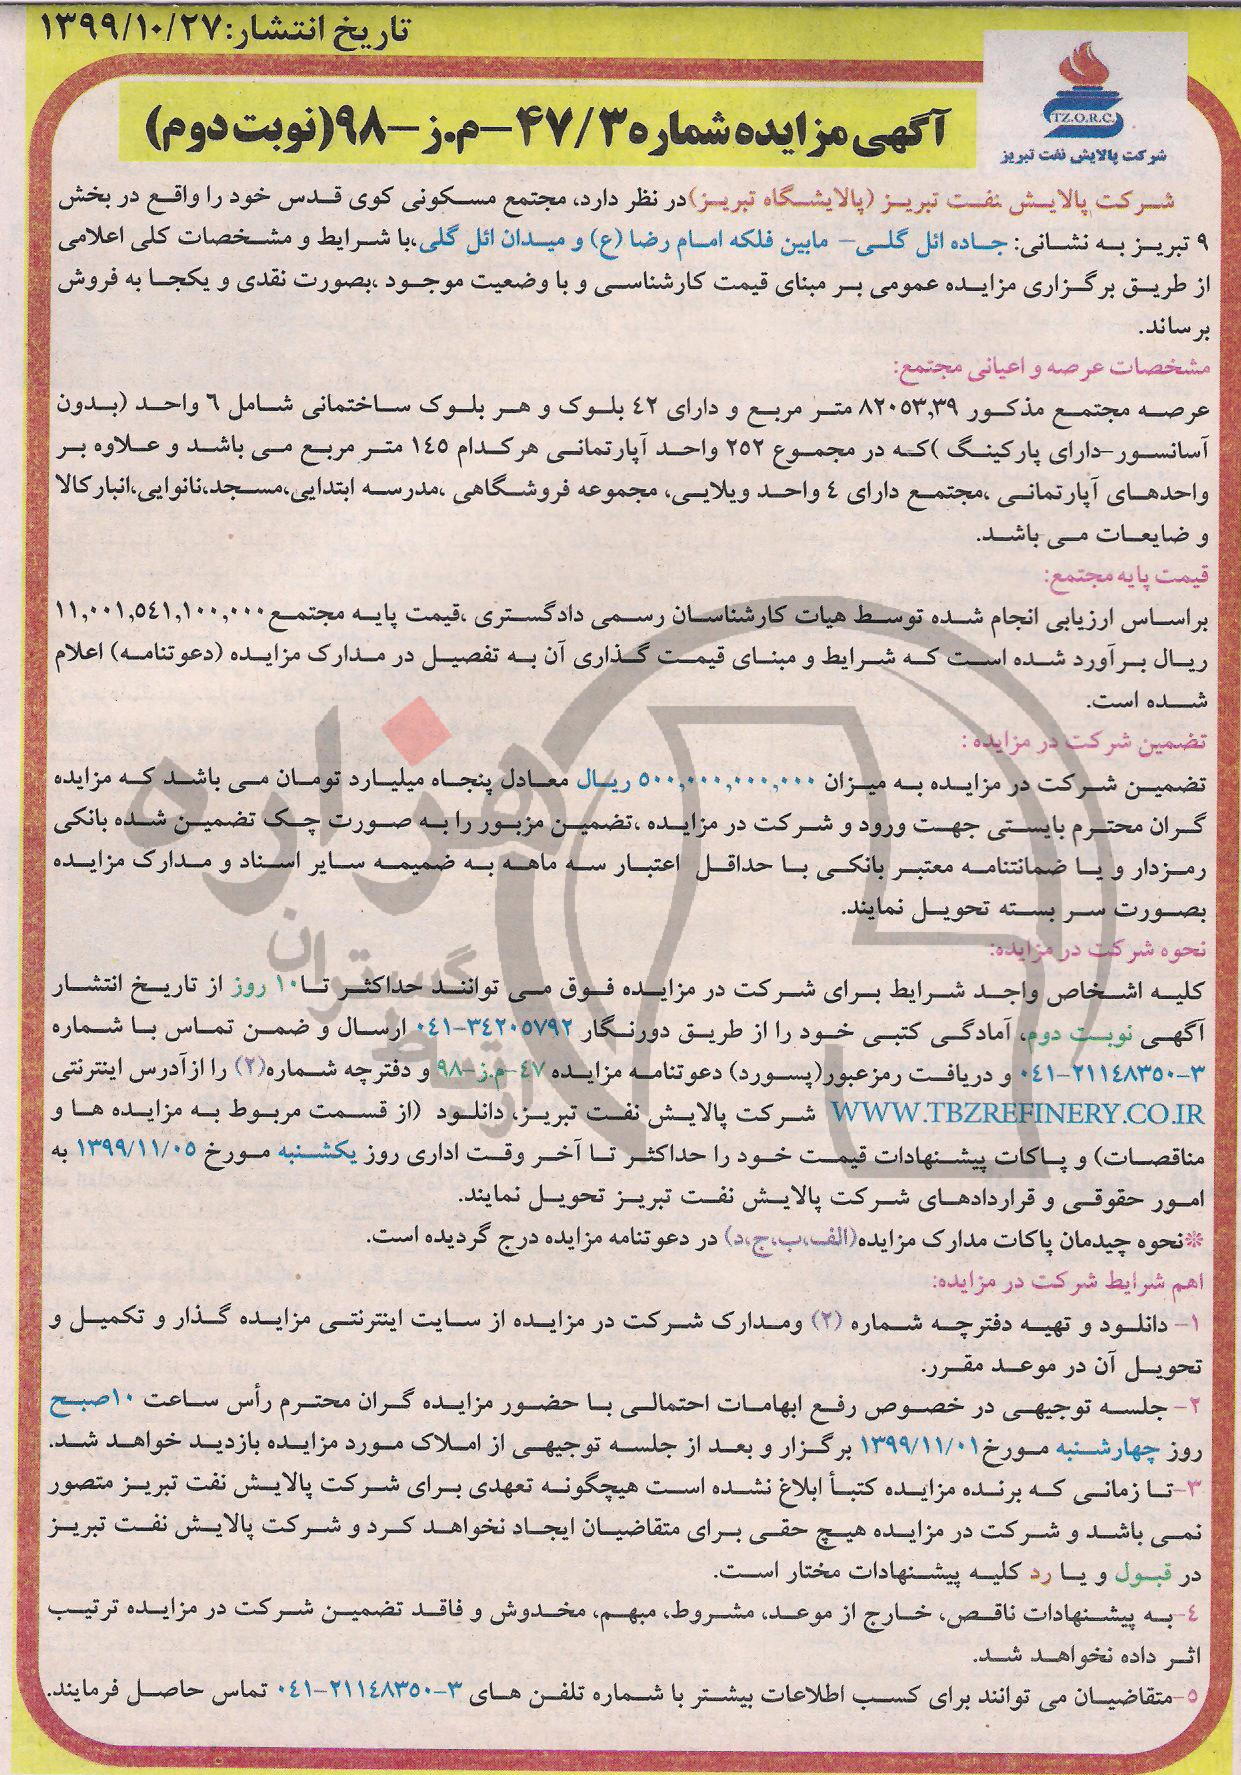 تاریخ انتشار:۱۳۹۹/۱۰/۲۷
TZ.O.R.C.
شرکت پالایش نفت تبریز
آگهی مزایده شماره ۴۷/۳-م.ز-۹۸(نوبت دوم)
شرکت پالایش نفت تبریز (پالایشگاه تبریز)در نظر دارد، مجتمع مسکونی کوی قدس خود را واقع در بخش
۹ تبریز به نشانی: جاده ائل گلی- مابین فلکه امام رضا (ع) و میدان ائل گلی،با شرایط و مشخصات کلی اعلامی
از طریق برگزاری مزایده عمومی بر مبنای قیمت کارشناسی و با وضعیت موجود ،بصورت نقدی و یکجا به فروش
برساند.
مشخصات عرصه و اعیانی مجتمع:
عرصه مجتمع مذکور ۸۲۰۵۳,۳۹ متر مربع و دارای ۴۲ بلوک و هر بلوک ساختمانی شامل ۶ واحد (بدون
آسانسور-دارای پارکینگ )که در مجموع ۲۵۲ واحد آپارتمانی هرکدام ۱۴۵ متر مربع می باشد و علاوه بر
واحدهای آپارتمانی ،مجتمع دارای ۴ واحد ویلایی، مجموعه فروشگاهی ،مدرسه ابتدایی،مسجد،نانوایی،انبارکالا
و ضایعات می باشد.
قیمت پایه مجتمع:
براساس ارزیابی انجام شده توسط هیات کارشناسان رسمی دادگستری ،قیمت پایه مجتمع۱۱,۰۰۱,۵۴۱,۱۰۰,۰۰۰
ریال برآورد شده است که شرایط و مبنای قیمت گذاری آن به تفصیل در مدارک مزایده (دعوتنامه) اعلام
شده است.
تضمین شرکت در مزایده :
تضمین شرکت در مزایده به میزان ۵۰۰,۰۰۰,۰۰۰,۰۰۰ ریال معادل پنجاه میلیارد تومان می باشد که مزایده
گران محترم بایستی جهت ورود و شرکت در مزایده ،تضمین مزبور را به صورت چک تضمین شده بانکی
رمزدار و یا ضمانتنامه معتبر بانکی با حداقل اعتبار سه ماهه به ضمیمه سایر اسناد و مدارک مزایده
بصورت سر بسته تحویل نمایند.
نحوه شرکت در مزایده:
کلیه اشخاص واجد شرایط برای شرکت در مزایده فوق می توانند حداکثر تا۱۰ روز از تاریخ انتشار
آگهی نوبت دوم، آمادگی کتبی خود را از طریق دورنگار ۳۴۲۰۵۷۹۲-۰۴۱ ارسال و ضمن تماس با شماره
۳-۲۱۱۴۸۳۵۰-۰۴۱ و دریافت رمزعبور(پسورد) دعوتنامه مزایده ۴۷-م.ز-۹۸ و دفترچه شماره(۲) را ازآدرس اینترنتی
WWW.TBZREFINERY.CO.IR شرکت پالایش نفت تبریز، دانلود (از قسمت مربوط به مزایده ها و
مناقصات) و پاکات پیشنهادات قیمت خود را حداکثر تا آخر وقت اداری روز یکشنبه مورخ ۱۳۹۹/۱۱/۰۵ به
امور حقوقی و قراردادهای شرکت پالایش نفت تبریز تحویل نمایند.
*نحوه چیدمان پاکات مدارک مزایده(الف،ب،ج،د) در دعوتنامه مزایده درج گردیده است.
اهم شرایط شرکت در مزایده:
۱- دانلود و تهیه دفترچه شماره (۲) ومدارک شرکت در مزایده از سایت اینترنتی مزایده گذار و تکمیل و
تحویل آن در موعد مقرر.
۲- جلسه توجیهی در خصوص رفع ابهامات احتمالی با حضور مزایده گران محترم رأس ساعت ۱۰صبح
روز چهارشنبه مورخ۱۳۹۹/۱۱/۰۱ برگزار و بعد از جلسه توجیهی از املاک مورد مزایده بازدید خواهد شد.
۳-تا زمانی که برنده مزایده کتبأ ابلاغ نشده است هیچگونه تعهدی برای شرکت پالایش نفت تبریز متصور
نمی باشد و شرکت در مزایده هیچ حقی برای متقاضیان ایجاد نخواهد کرد و شرکت پالایش نفت تبریز
در قبول و یا رد کلیه پیشنهادات مختار است.
۴-به پیشنهادات ناقص، خارج از موعد، مشروط، مبهم، مخدوش و فاقد تضمین شرکت در مزایده ترتیب
اثر داده نخواهد شد.
۵-متقاضیان می توانند برای کسب اطلاعات بیشتر با شماره تلفن های ۳-۲۱۱۴۸۳۵۰-۰۴۱ تماس حاصل فرمایند.
هزاره
گستران